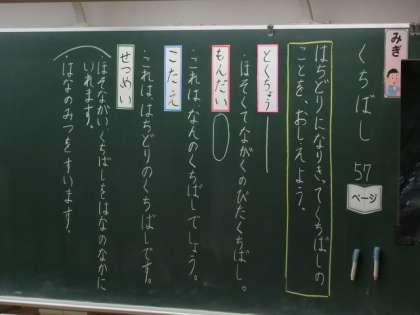 みぎ
くちばし 57 ページ
はちどりになりきってくちばしの
ことを、おしえよう。
とくちょう
・ほそくてながくのびたくちばし。
もんだい
・これは、なんのくちばしでしょう。
こたえ
・これは、はちどりのくちばしです。
せつめい
ほそながいくちばしをはなのなかに
いれます。
・はなのみつをすいます。